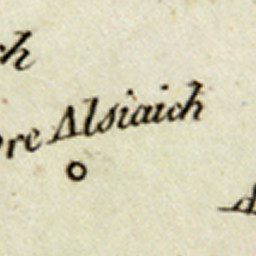 ch
re Alsiaich